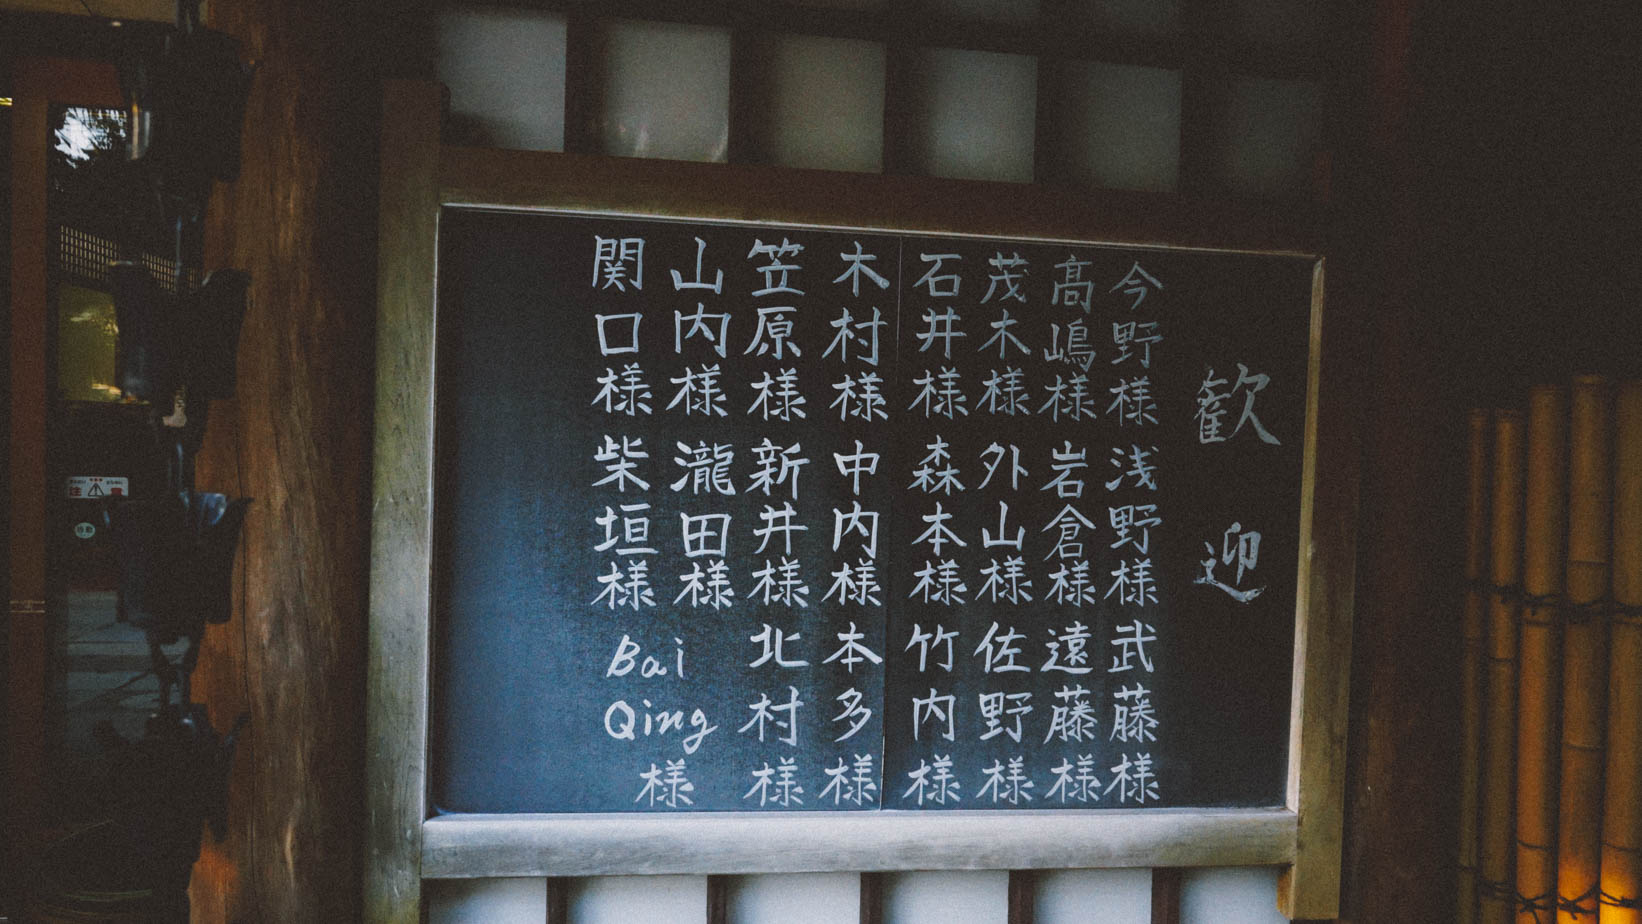 歓迎
今野様 浅野様 武藤様
髙嶋様 岩倉様 遠藤様
茂木様 外山様 佐野様
石井様 森本様 竹内様
木村様 中内様 本多様
笠原様 新井様 北村様
山内様 瀧田様
関口様 柴垣様 Bai Qing 様
注